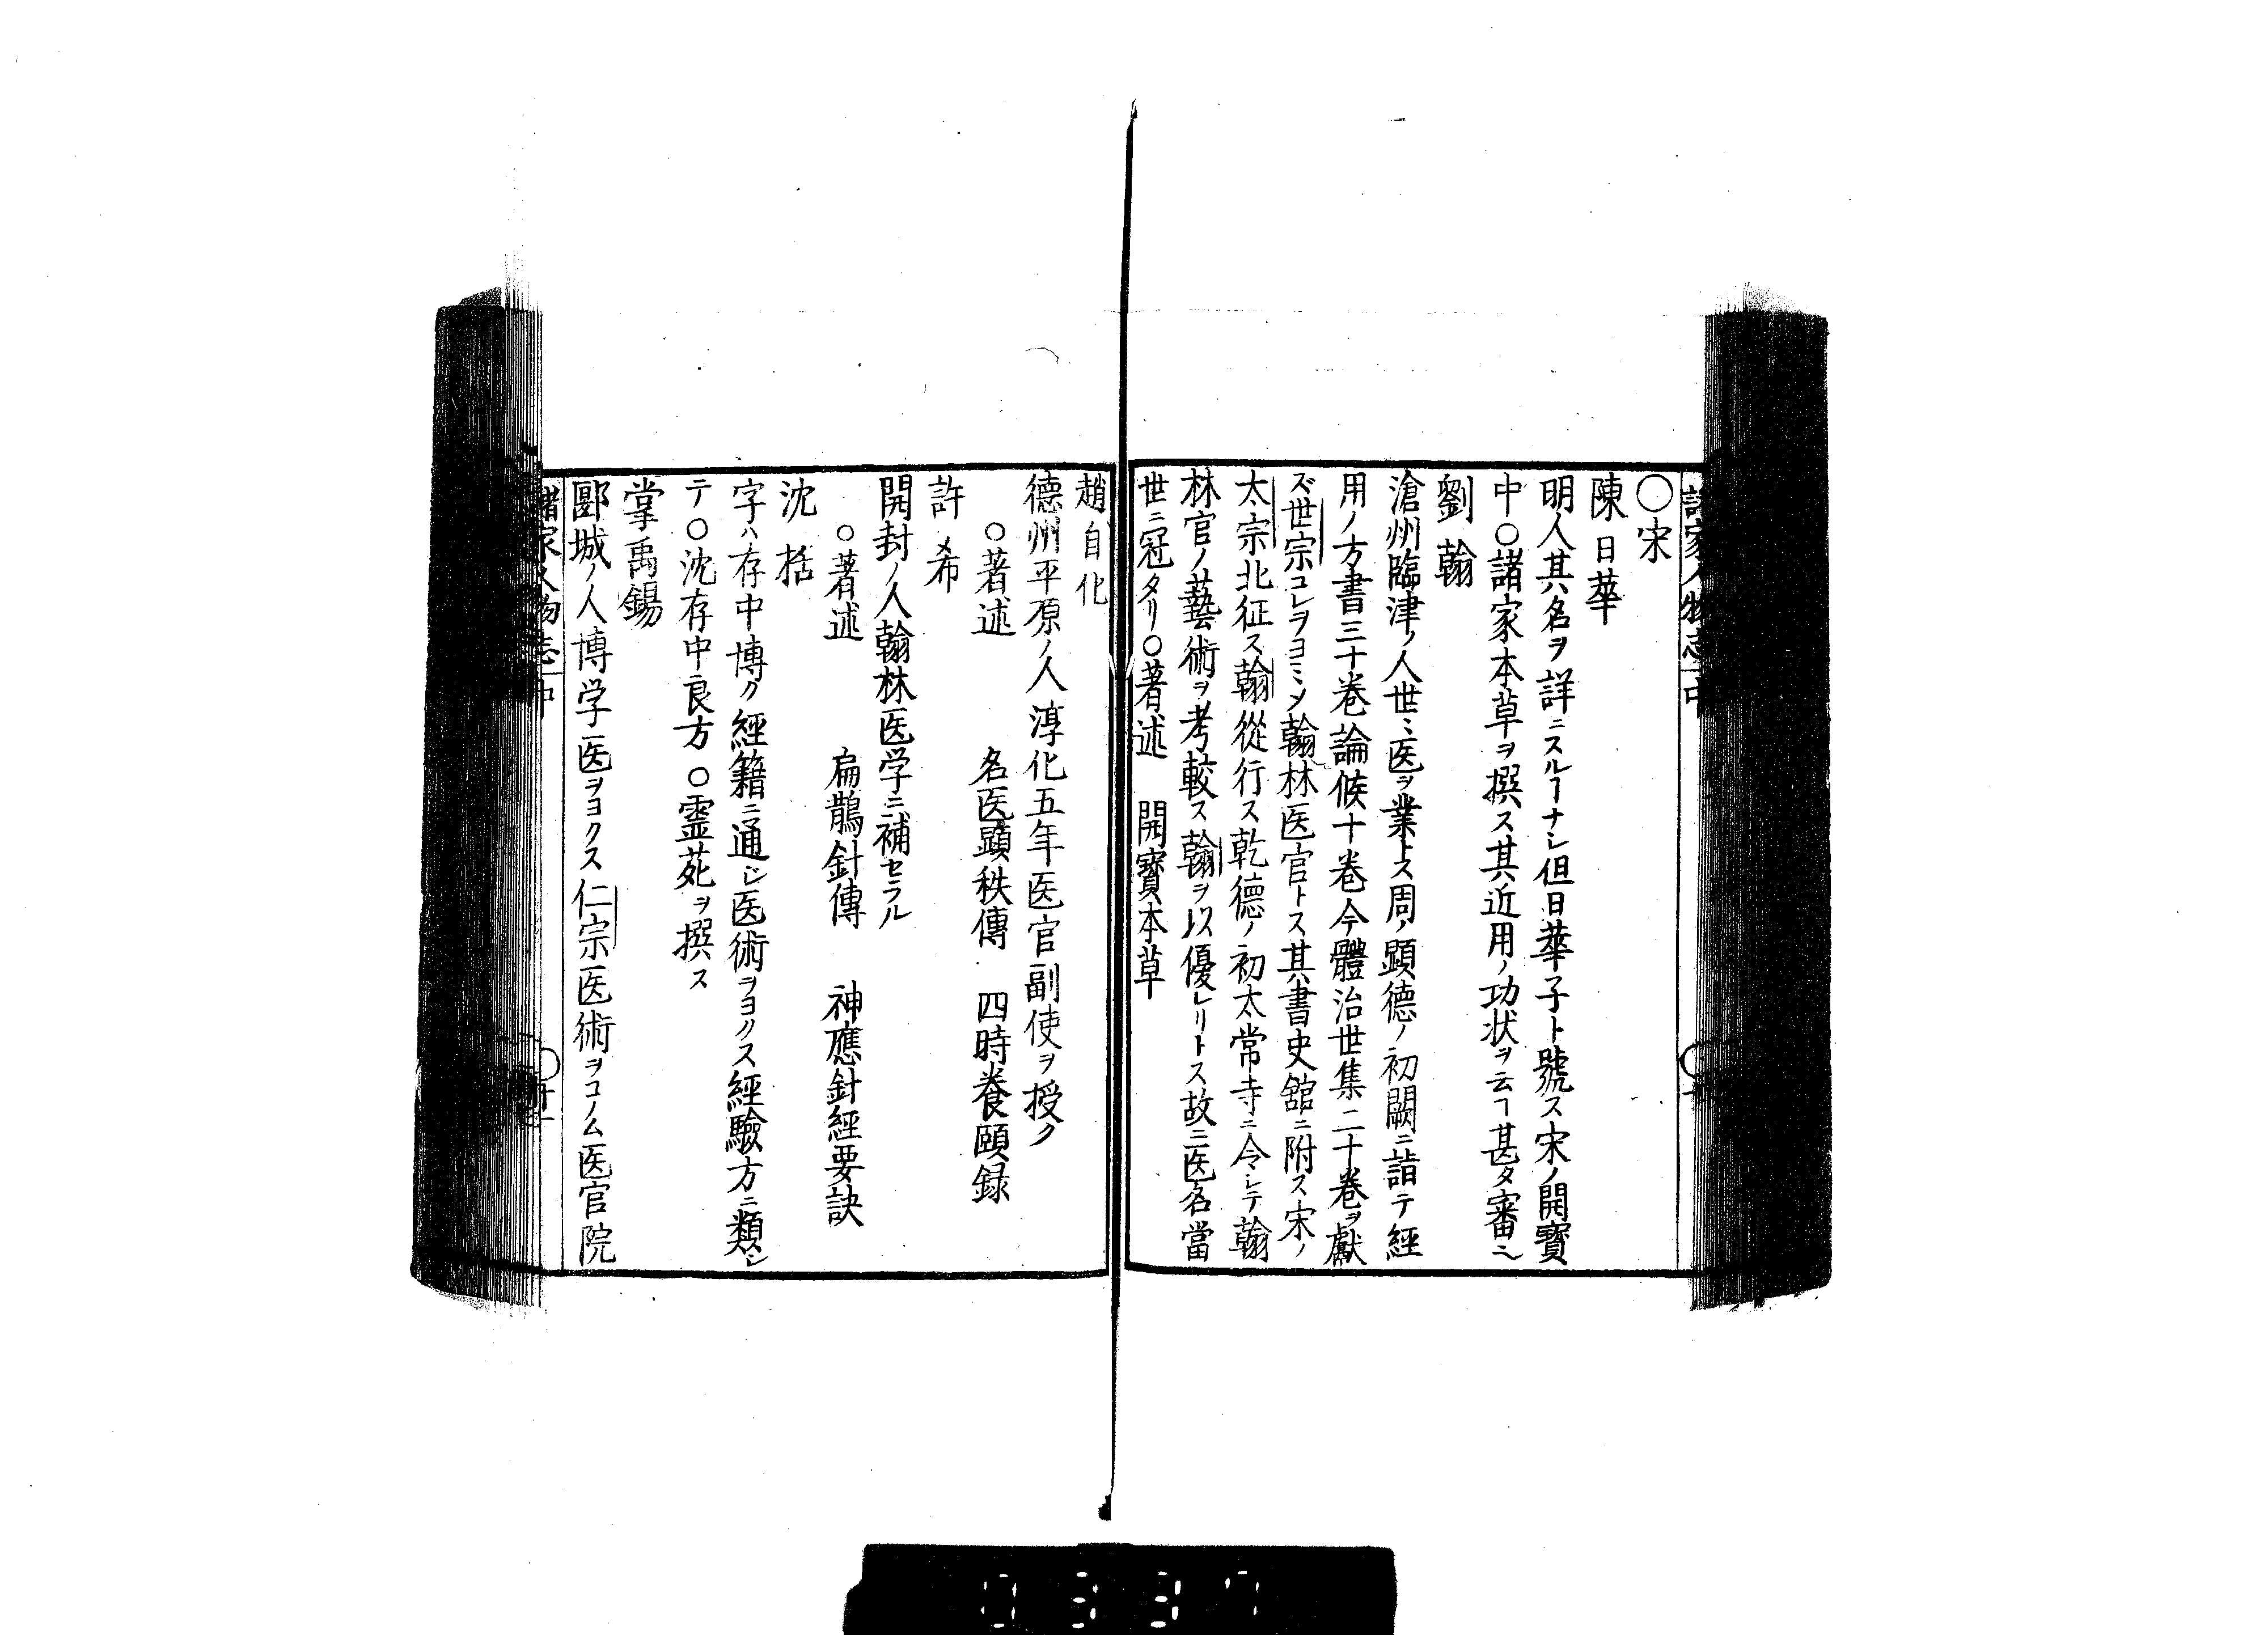 〇宋
陳日華
明人其名ヲ詳ニスルヿナシ但日華子ト號ス宋ノ開寶
中〇諸家本草ヲ撰ス其近用ノ功状ヲ云ヿ甚タ審ニ
劉翰
滄州臨津ノ人世ミ医ヲ業トス周ノ顕德ノ初闕ニ詣テ經
用ノ方書三十巻論候十巻今體治世集二十巻ヲ獻
ズ世宗コレヲヨミシ翰林医官トス其書史舘ニ附ス宋ノ
太宗北征ス翰從行ス乾德ノ初太常寺ニ令シテ翰
林官ノ藝術ヲ考較ス翰ヲ以優レリトス故ニ医名當
世ニ冠タリ〇著述 開寳本草
趙自化
德州平原ノ人淳化五年医官副使ヲ授ク
〇著述 名医顕秩傳 四時養頤録
許希
開封ノ人翰林医学ニ補セラル
〇著述 扁鵲針傳 神應針經要訣
沈括
字ハ存中博ク經籍ニ通シ医術ヲヨクス經驗方ニ類シ
テ〇沈存中良方〇霊苑ヲ撰ス
掌禹錫
郾城ノ人博学医ヲヨクス仁宗医術ヲコノム医官院
諸家人物志 中